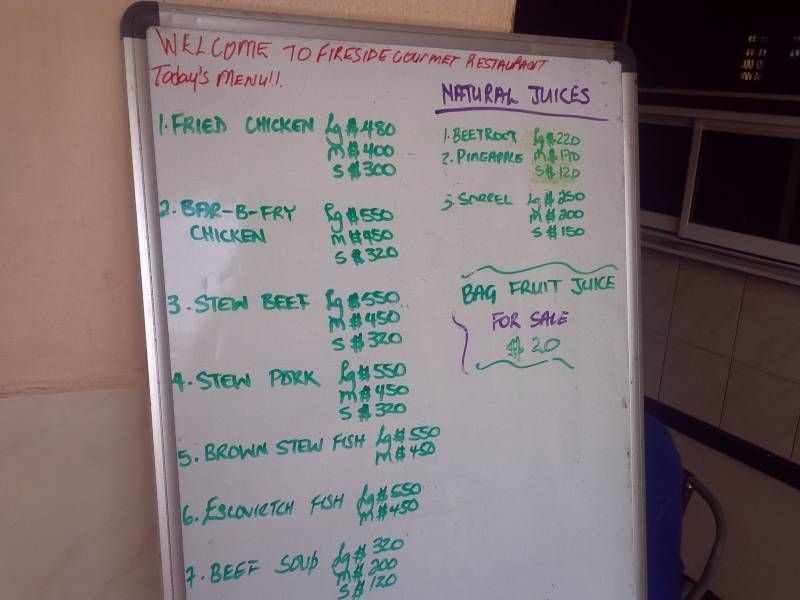 WELCOME TO FIRESIDE GOURMET RESTAURANT
Today's MENU!!
1. FRIED CHICKEN Lg $480
M $400
S $300
2. BAR-B-FRY Lg $550
CHICKEN M $450
S $320
3. STEW BEEF Lg $550
M $450
S $320
4. STEW PORK Lg $550
M $450
S $320
5. BROWN STEW FISH Lg $550
M $450
6. ESCOVITCH FISH Lg $550
M $450
7. BEEF SOUP Lg $320
M $200
S $120
NATURAL JUICES
1. BEETROOT Lg $220
2. PINEAPPLE M $170
S $120
3. SORREL Lg $250
M $200
S $150
BAG FRUIT JUICE
FOR SALE
$20